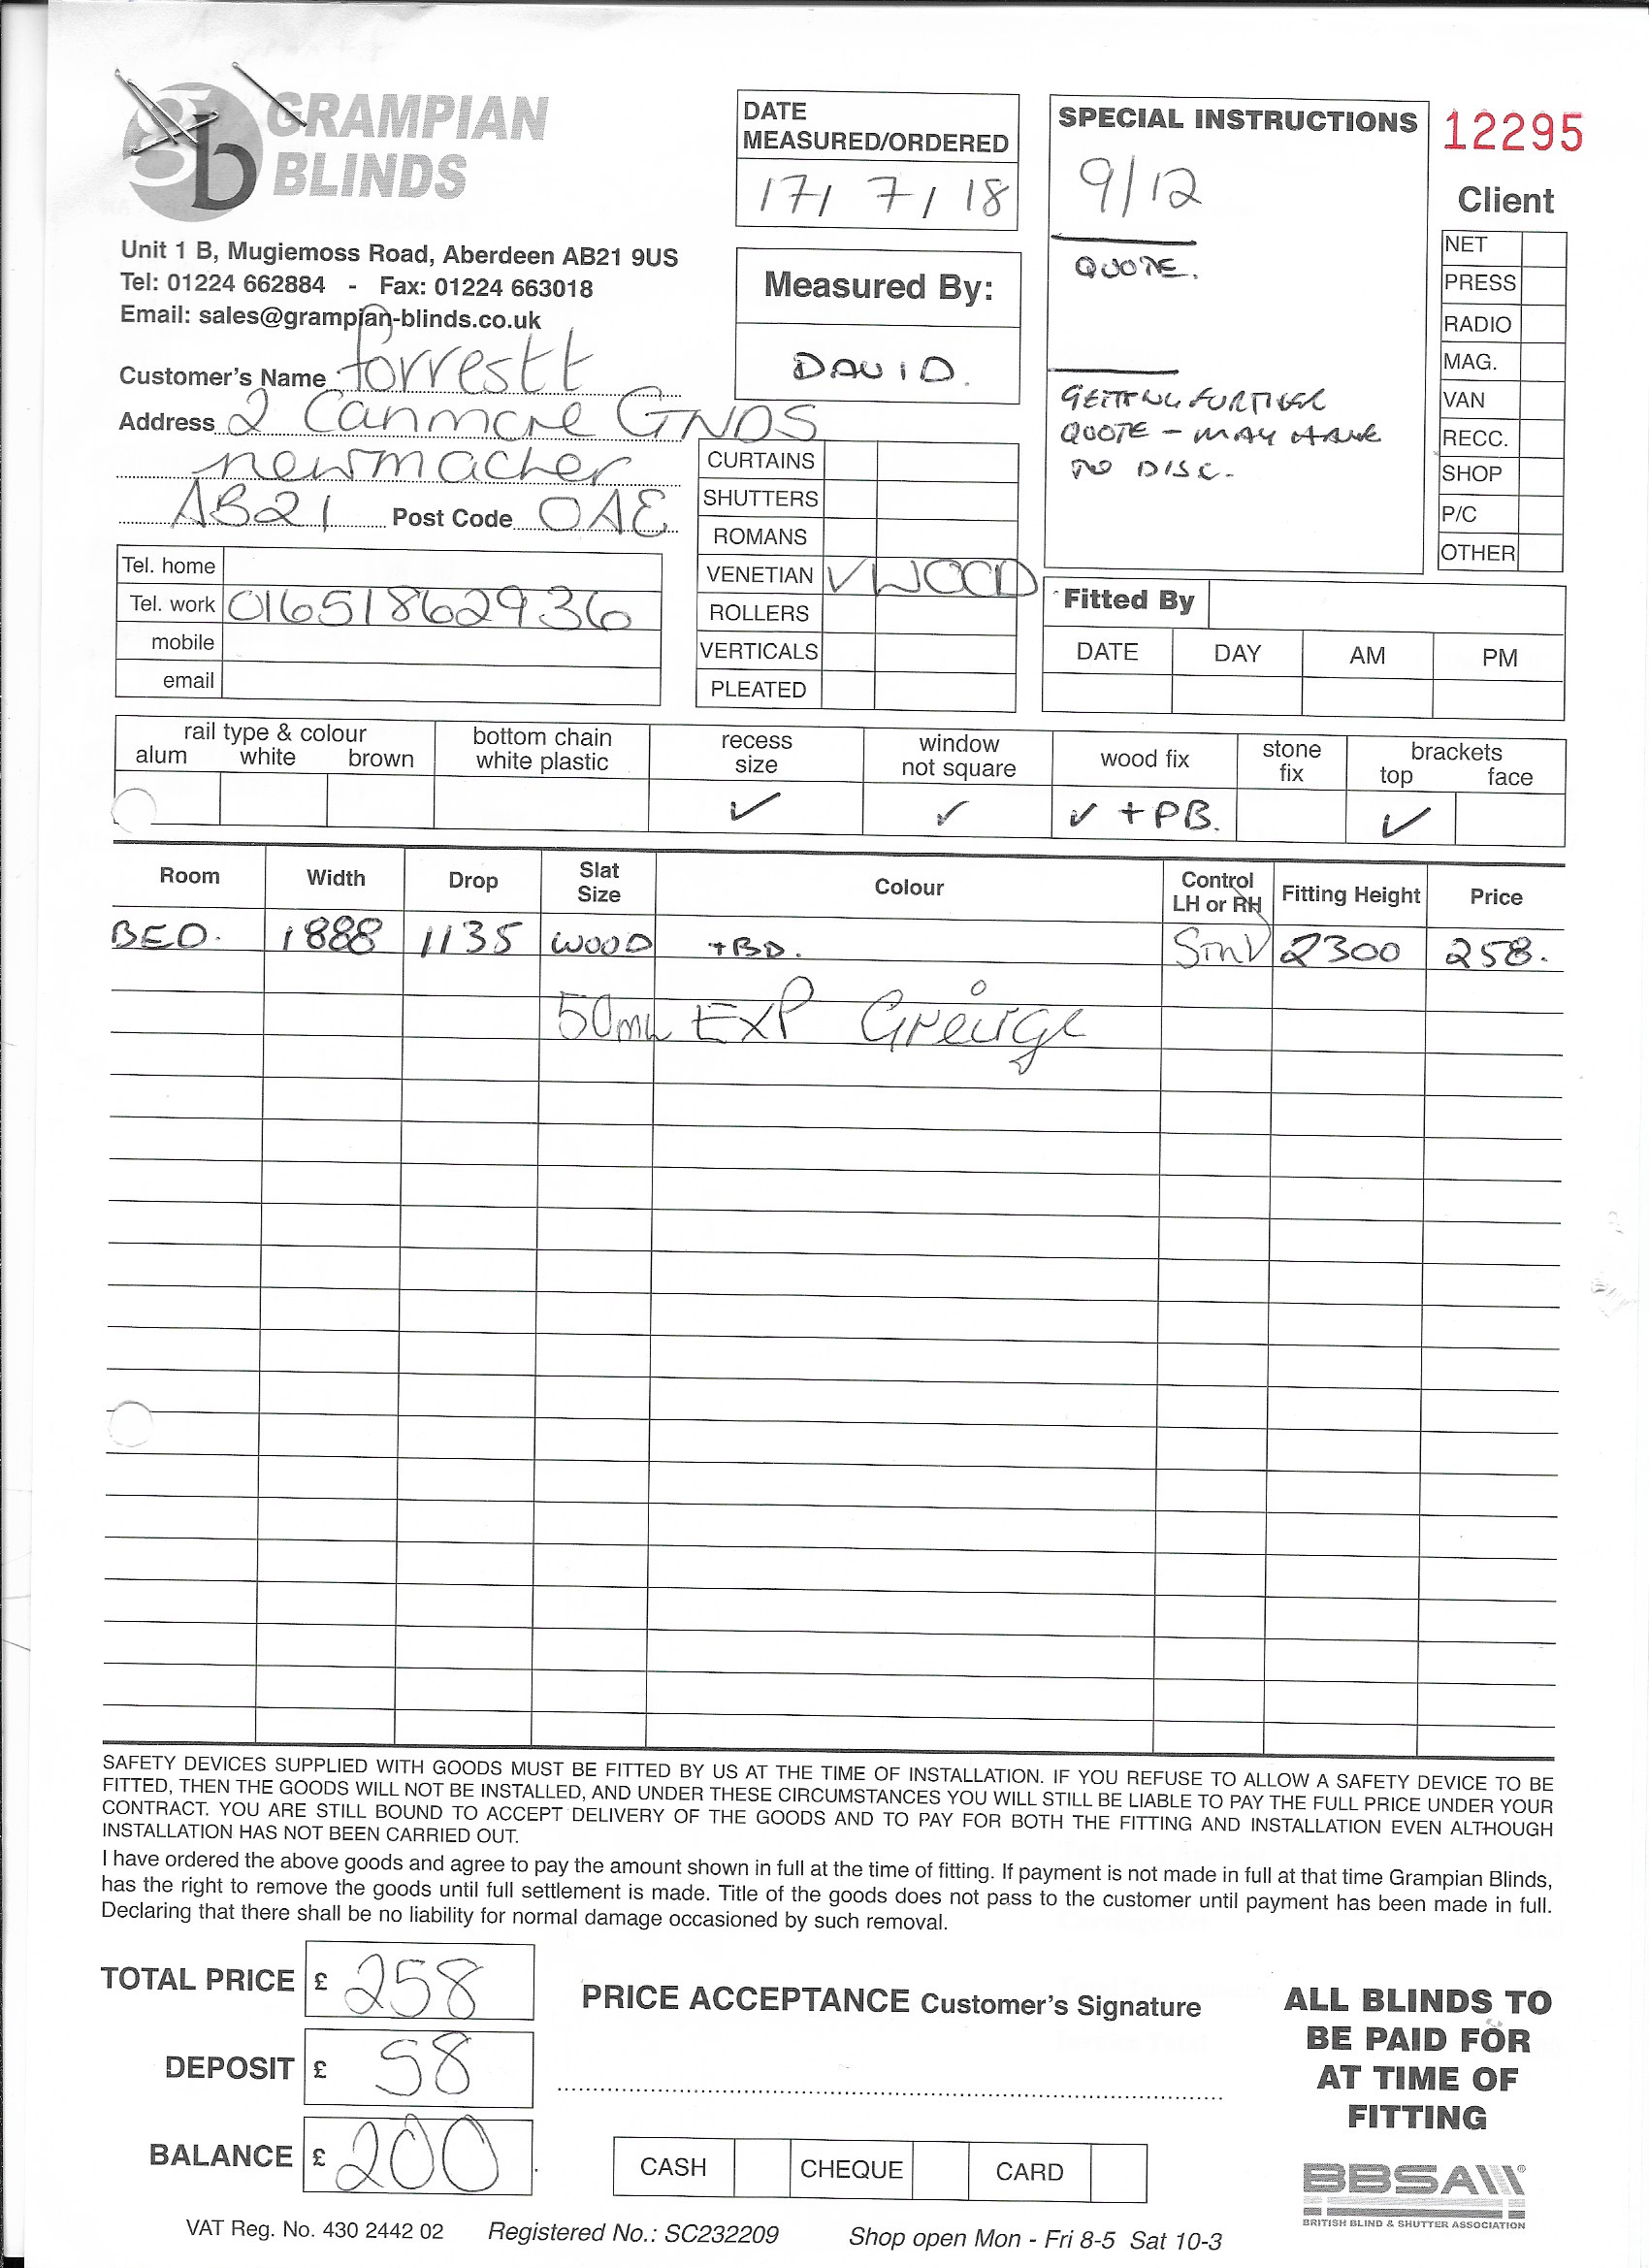 GRAMPIAN
BLINDS
Unit 1 B, Mugiemoss Road, Aberdeen AB21 9US
Tel: 01224 662884 - Fax: 01224 663018
Email: sales@grampian-blinds.co.uk
Customer's Name Forrestt
Address 2 Canmore GNDS
newmacher
AB21 Post Code OAE
DATE
MEASURED/ORDERED
17/ 7/ 18
Measured By:
DAVID.
SPECIAL INSTRUCTIONS
9/12
QUOTE.
GETTING FURTHER
QUOTE - MAY HAVE
NO DISC.
12295
Client
NET
PRESS
RADIO
MAG.
VAN
RECC.
SHOP
P/C
OTHER
Tel. home
Tel. work 01651862936
mobile
email
CURTAINS
SHUTTERS
ROMANS
VENETIAN ✓ WOOD
ROLLERS
VERTICALS
PLEATED
Fitted By
DATE DAY AM PM
rail type & colour
alum white brown
bottom chain
white plastic
recess
size
✓
window
not square
✓
wood fix
✓ + PB.
stone
fix
brackets
top face
✓
Room Width Drop Slat Size Colour Control LH or RH Fitting Height Price
BED. 1888 1135 WOOD +BD. Stnd 2300 258.
50mm EXP Greige
SAFETY DEVICES SUPPLIED WITH GOODS MUST BE FITTED BY US AT THE TIME OF INSTALLATION. IF YOU REFUSE TO ALLOW A SAFETY DEVICE TO BE
FITTED, THEN THE GOODS WILL NOT BE INSTALLED, AND UNDER THESE CIRCUMSTANCES YOU WILL STILL BE LIABLE TO PAY THE FULL PRICE UNDER YOUR
CONTRACT. YOU ARE STILL BOUND TO ACCEPT DELIVERY OF THE GOODS AND TO PAY FOR BOTH THE FITTING AND INSTALLATION EVEN ALTHOUGH
INSTALLATION HAS NOT BEEN CARRIED OUT.
I have ordered the above goods and agree to pay the amount shown in full at the time of fitting. If payment is not made in full at that time Grampian Blinds,
has the right to remove the goods until full settlement is made. Title of the goods does not pass to the customer until payment has been made in full.
Declaring that there shall be no liability for normal damage occasioned by such removal.
TOTAL PRICE £ 258
DEPOSIT £ 58
BALANCE £ 200
PRICE ACCEPTANCE Customer's Signature
CASH CHEQUE CARD
ALL BLINDS TO
BE PAID FOR
AT TIME OF
FITTING
BBSA
BRITISH BLIND & SHUTTER ASSOCIATION
VAT Reg. No. 430 2442 02 Registered No.: SC232209 Shop open Mon - Fri 8-5 Sat 10-3